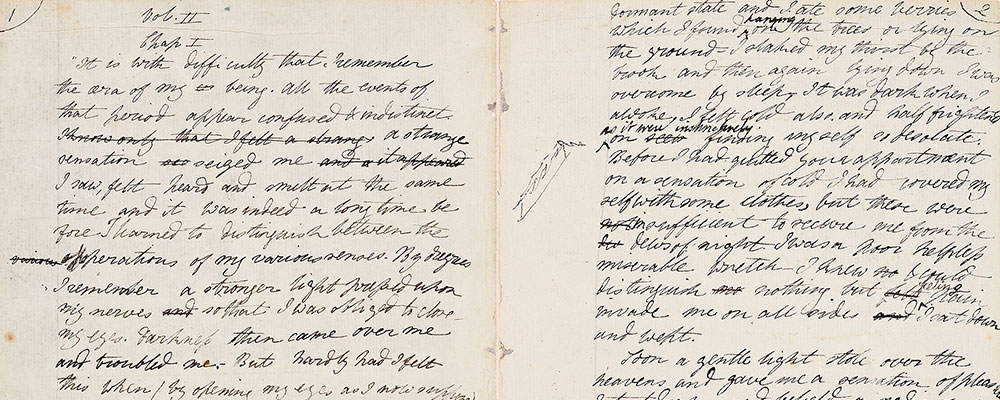 1
Vol. II
Chap I
It is with difficulty that I remember
the æra of my being. All the events of
that period appear confused & indistinct
I know only that I felt a strange a strange
sensation seized me and it appeared
I saw felt heard and smelt at the same
time and it was indeed a long time be
fore I learned to distinguish between the
various operations of my various senses. By degrees
I remember a stronger light pressed upon
my nerves and so that I was obliged to close
my eyes. Darkness then came over me
and troubled me. But hardly had I felt
this when (by opening my eyes as I now suppose
2
dormant state and I ate some berries
which I found hanging on the trees or lying on
the ground I slaked my thirst by the
brook and then again lying down I was
overcome by sleep. It was dark when I
awoke, I felt cold also and half frightened
as it were instinctively
on finding myself so desolate.
Before I had quitted your appartment
on a sensation of cold I had covered my
self with some clothes but these were
insufficient to secure me from the
dews of night I was a poor helpless
miserable wretch I knew no & could
distinguish no nothing but feeling pain
invade me on all sides and I sat down
and wept.
Soon a gentle light stole over the
heavens and gave me a sensation of pleasure